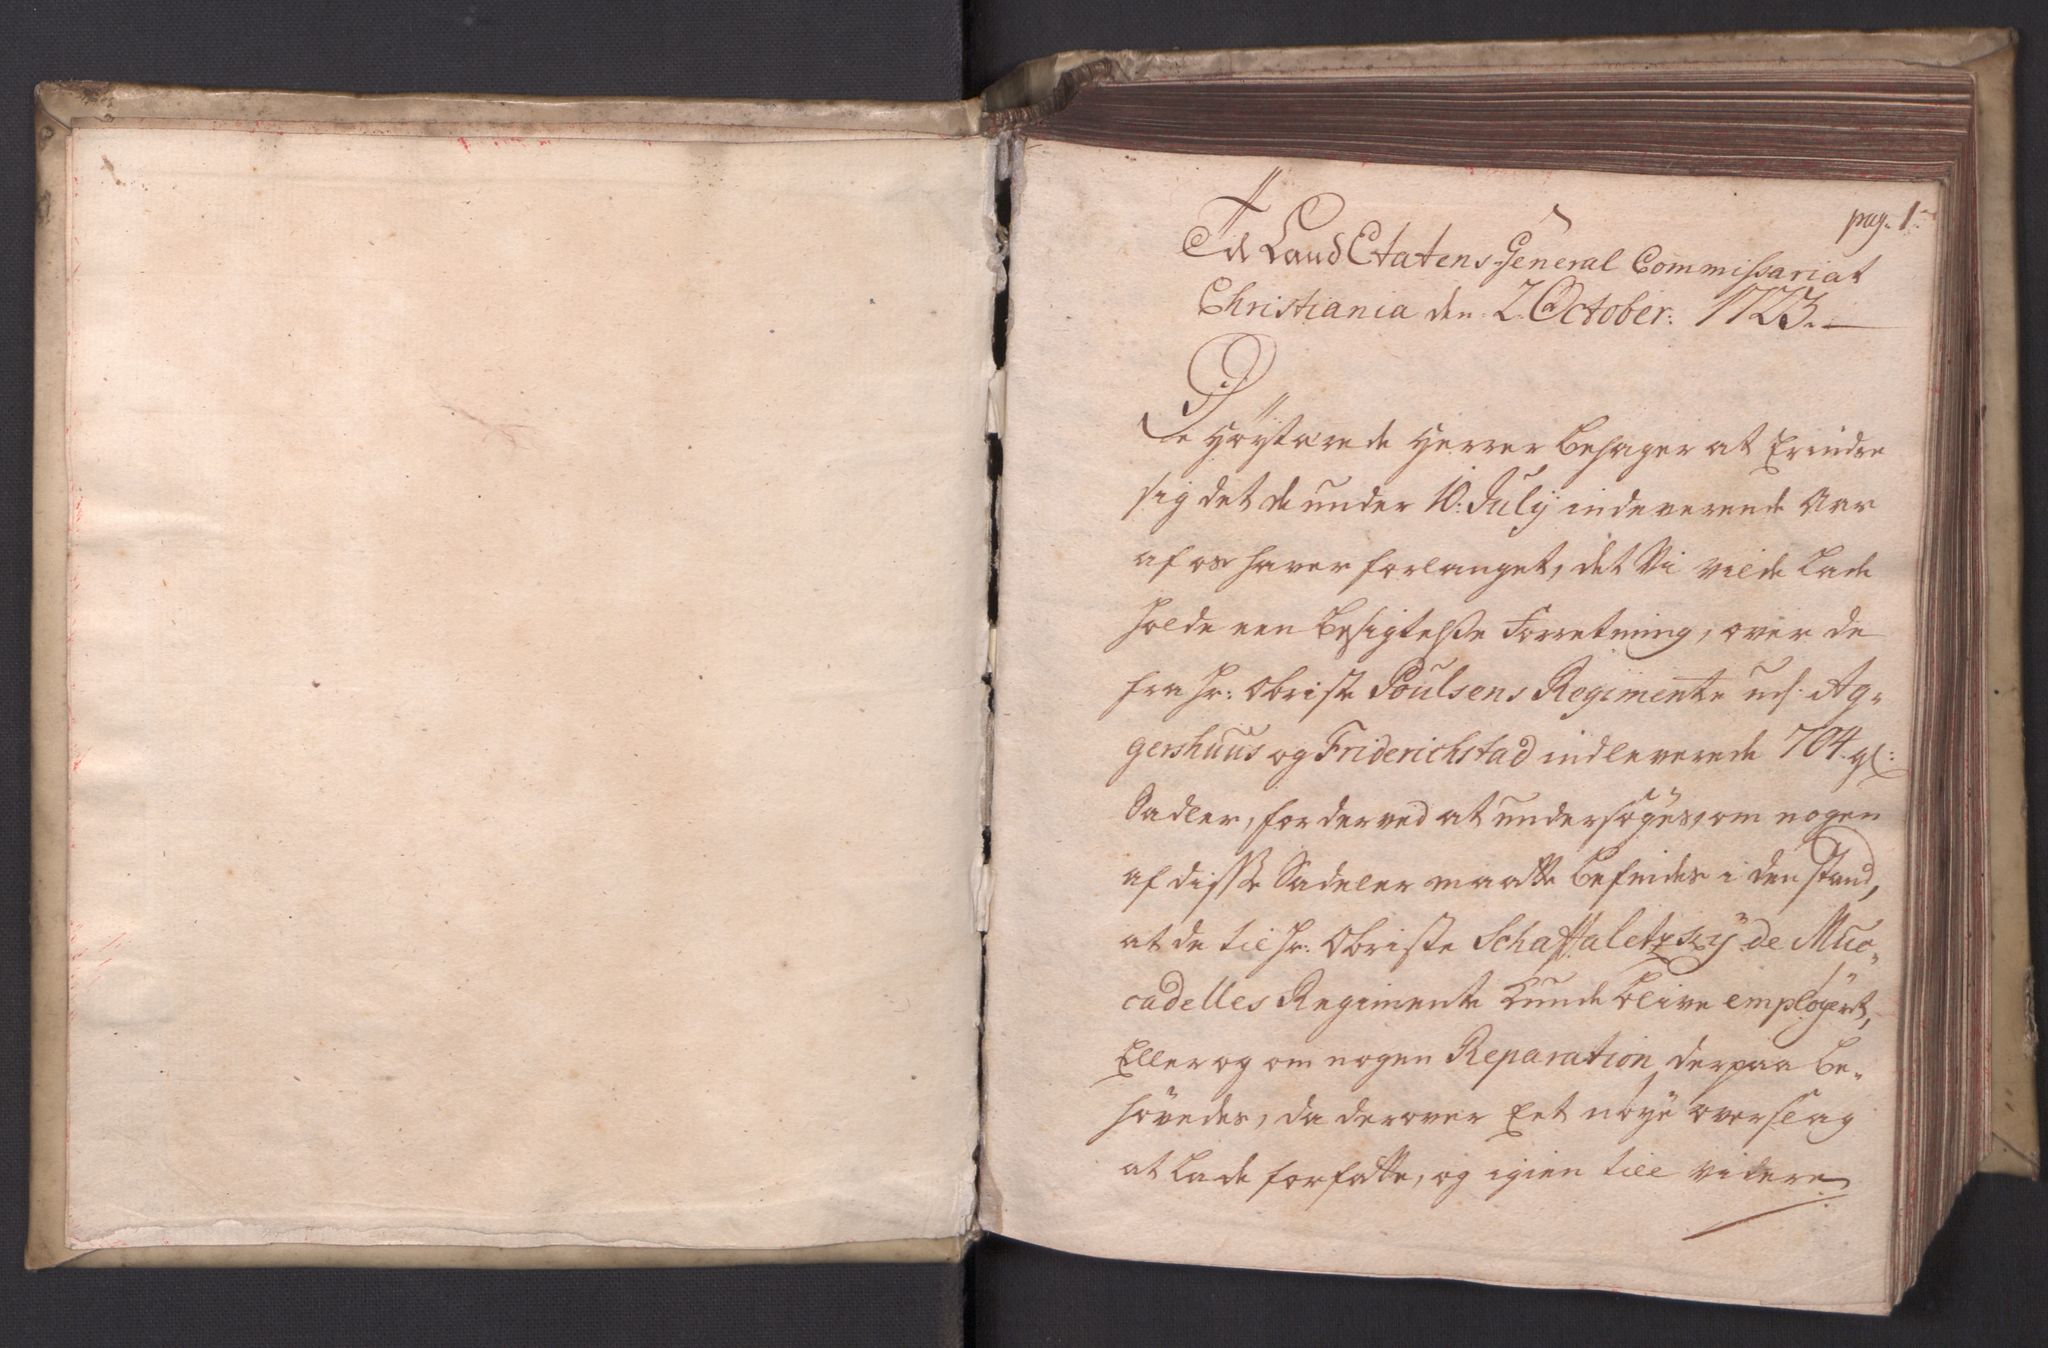 pag. 1.
Til Land Etatens General Commissariat
Christiania den 2. October. 1723.
De Höystærede Herrer behager at Erindre
sig det de under 10: July indeværende Aar
af os haver forlanget, det Vi vilde Lade
holde een besigtelsse Forretning, over de
fra Hr: Obriste Poulsens Regimente ud. Ag-
gershuus og Friderichstad indleverede 704. gl:
Sadler, for derved at undersøges, om nogen
af disse Sadeler maatte befindes i den stand,
at de til Hr. Obriste Schaffaletzsky de Muc-
cadelles Regimente kunde blive employert,
Eller og om nogen Reparation derpaa be-
hövedes, da derover Eet nöye overslag
at Lade forfatte, og igien till videre